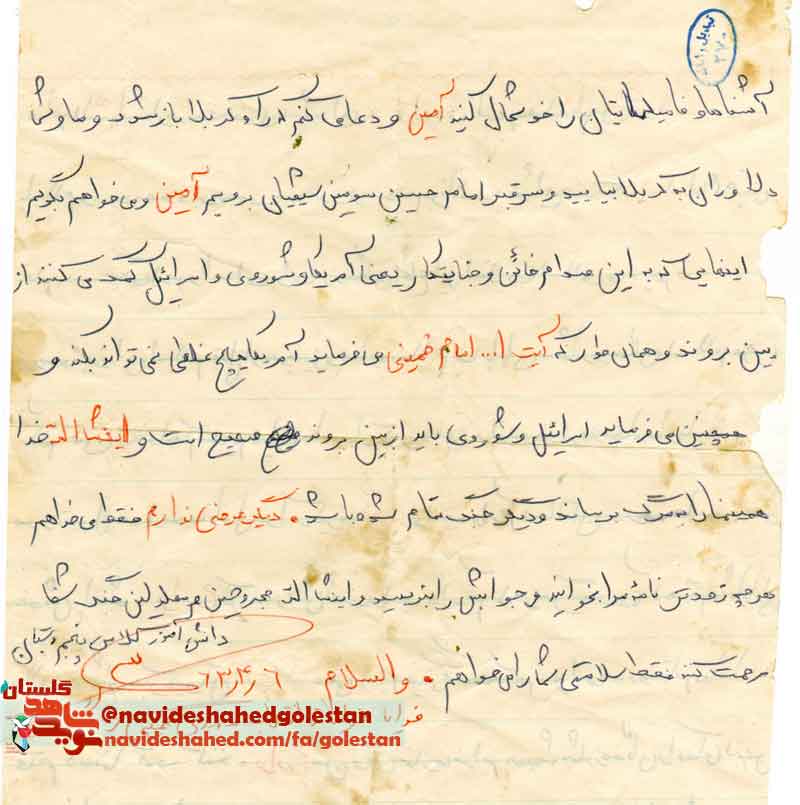 آشناها و فامیلهایتان را خوشحال کنید آمین و دعا می کنم که راه کربلا باز شود و ما و شما
دلاوران به کربلا بیایید و سر قبر امام حسین سومین شیعیان برویم آمین و می خواهم بگویم
اینهایی که به این صدام خائن و جنایتکار یعنی آمریکا و شوروی و اسرائیل کمک می کنند از
بین بروند و همان طور که آیت ا... امام خمینی می فرماید آمریکا هیچ غلطی نمی تواند بکند و
همچنین می فرماید اسرائیل و شوروی باید از بین بروند صحیح است و اینشا الله خدا
همینها را به مرگ برساند و دیگر جنگ تمام شده باشد. دیگر عرضی ندارم فقط می خواهم
هر چه زودتر نامه مرا بخوانید و جوابش را بنویسید و اینشا الله مجروحین و معلولین جنگ شفا
مرحمت کند فقط سلامتی شما را می خواهم. والسلام ۶۳/۴/۶
دانش آموز کلاس پنجم دبستان
خدایا
گلستان
نوید شاهد
@navideshahedgolestan
navideshahed.com/fa/golestan